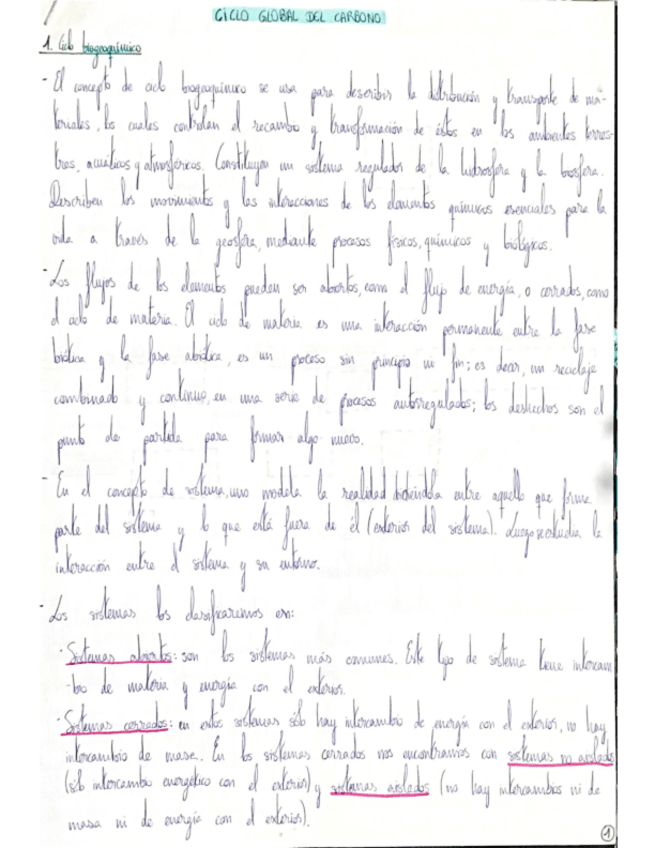 CICLO GLOBAL DEL CARBONO
1. Ciclo biogeoquímico
- El concepto de ciclo biogeoquímico se usa para describir la distribución y transporte de ma-
teriales, los cuales controlan el recambio y transformación de éstos en los ambientes terres-
tres, acuáticos y atmosféricos. Constituyen un sistema regulador de la hidrosfera y la biosfera.
Describen los movimientos y las interacciones de los elementos químicos esenciales para la
vida a través de la geosfera, mediante procesos físicos, químicos y biológicos.
- Los flujos de los elementos pueden ser abiertos, como el flujo de energía, o cerrados, como
el ciclo de materia. El ciclo de materia es una interacción permanente entre la fase
biótica y la fase abiótica, es un proceso sin principio ni fin; es decir, un reciclaje
combinado y continuo, en una serie de procesos autorregulados; los deshechos son el
punto de partida para formar algo nuevo.
- En el concepto de sistema, uno modela la realidad dividiéndola entre aquello que forma
parte del sistema y lo que está fuera de él (exterior del sistema). Luego se estudia la
interacción entre el sistema y su entorno.
- Los sistemas los clasificaremos en:
· Sistemas abiertos: son los sistemas más comunes. Este tipo de sistema tiene intercam
-bio de materia y energía con el exterior.
· Sistemas cerrados: en estos sistemas sólo hay intercambio de energía con el exterior, no hay
intercambio de masa. En los sistemas cerrados nos encontramos con sistemas no aislados
(sólo intercambio energético con el exterior) y sistemas aislados (no hay intercambios ni de
masa ni de energía con el exterior).
1